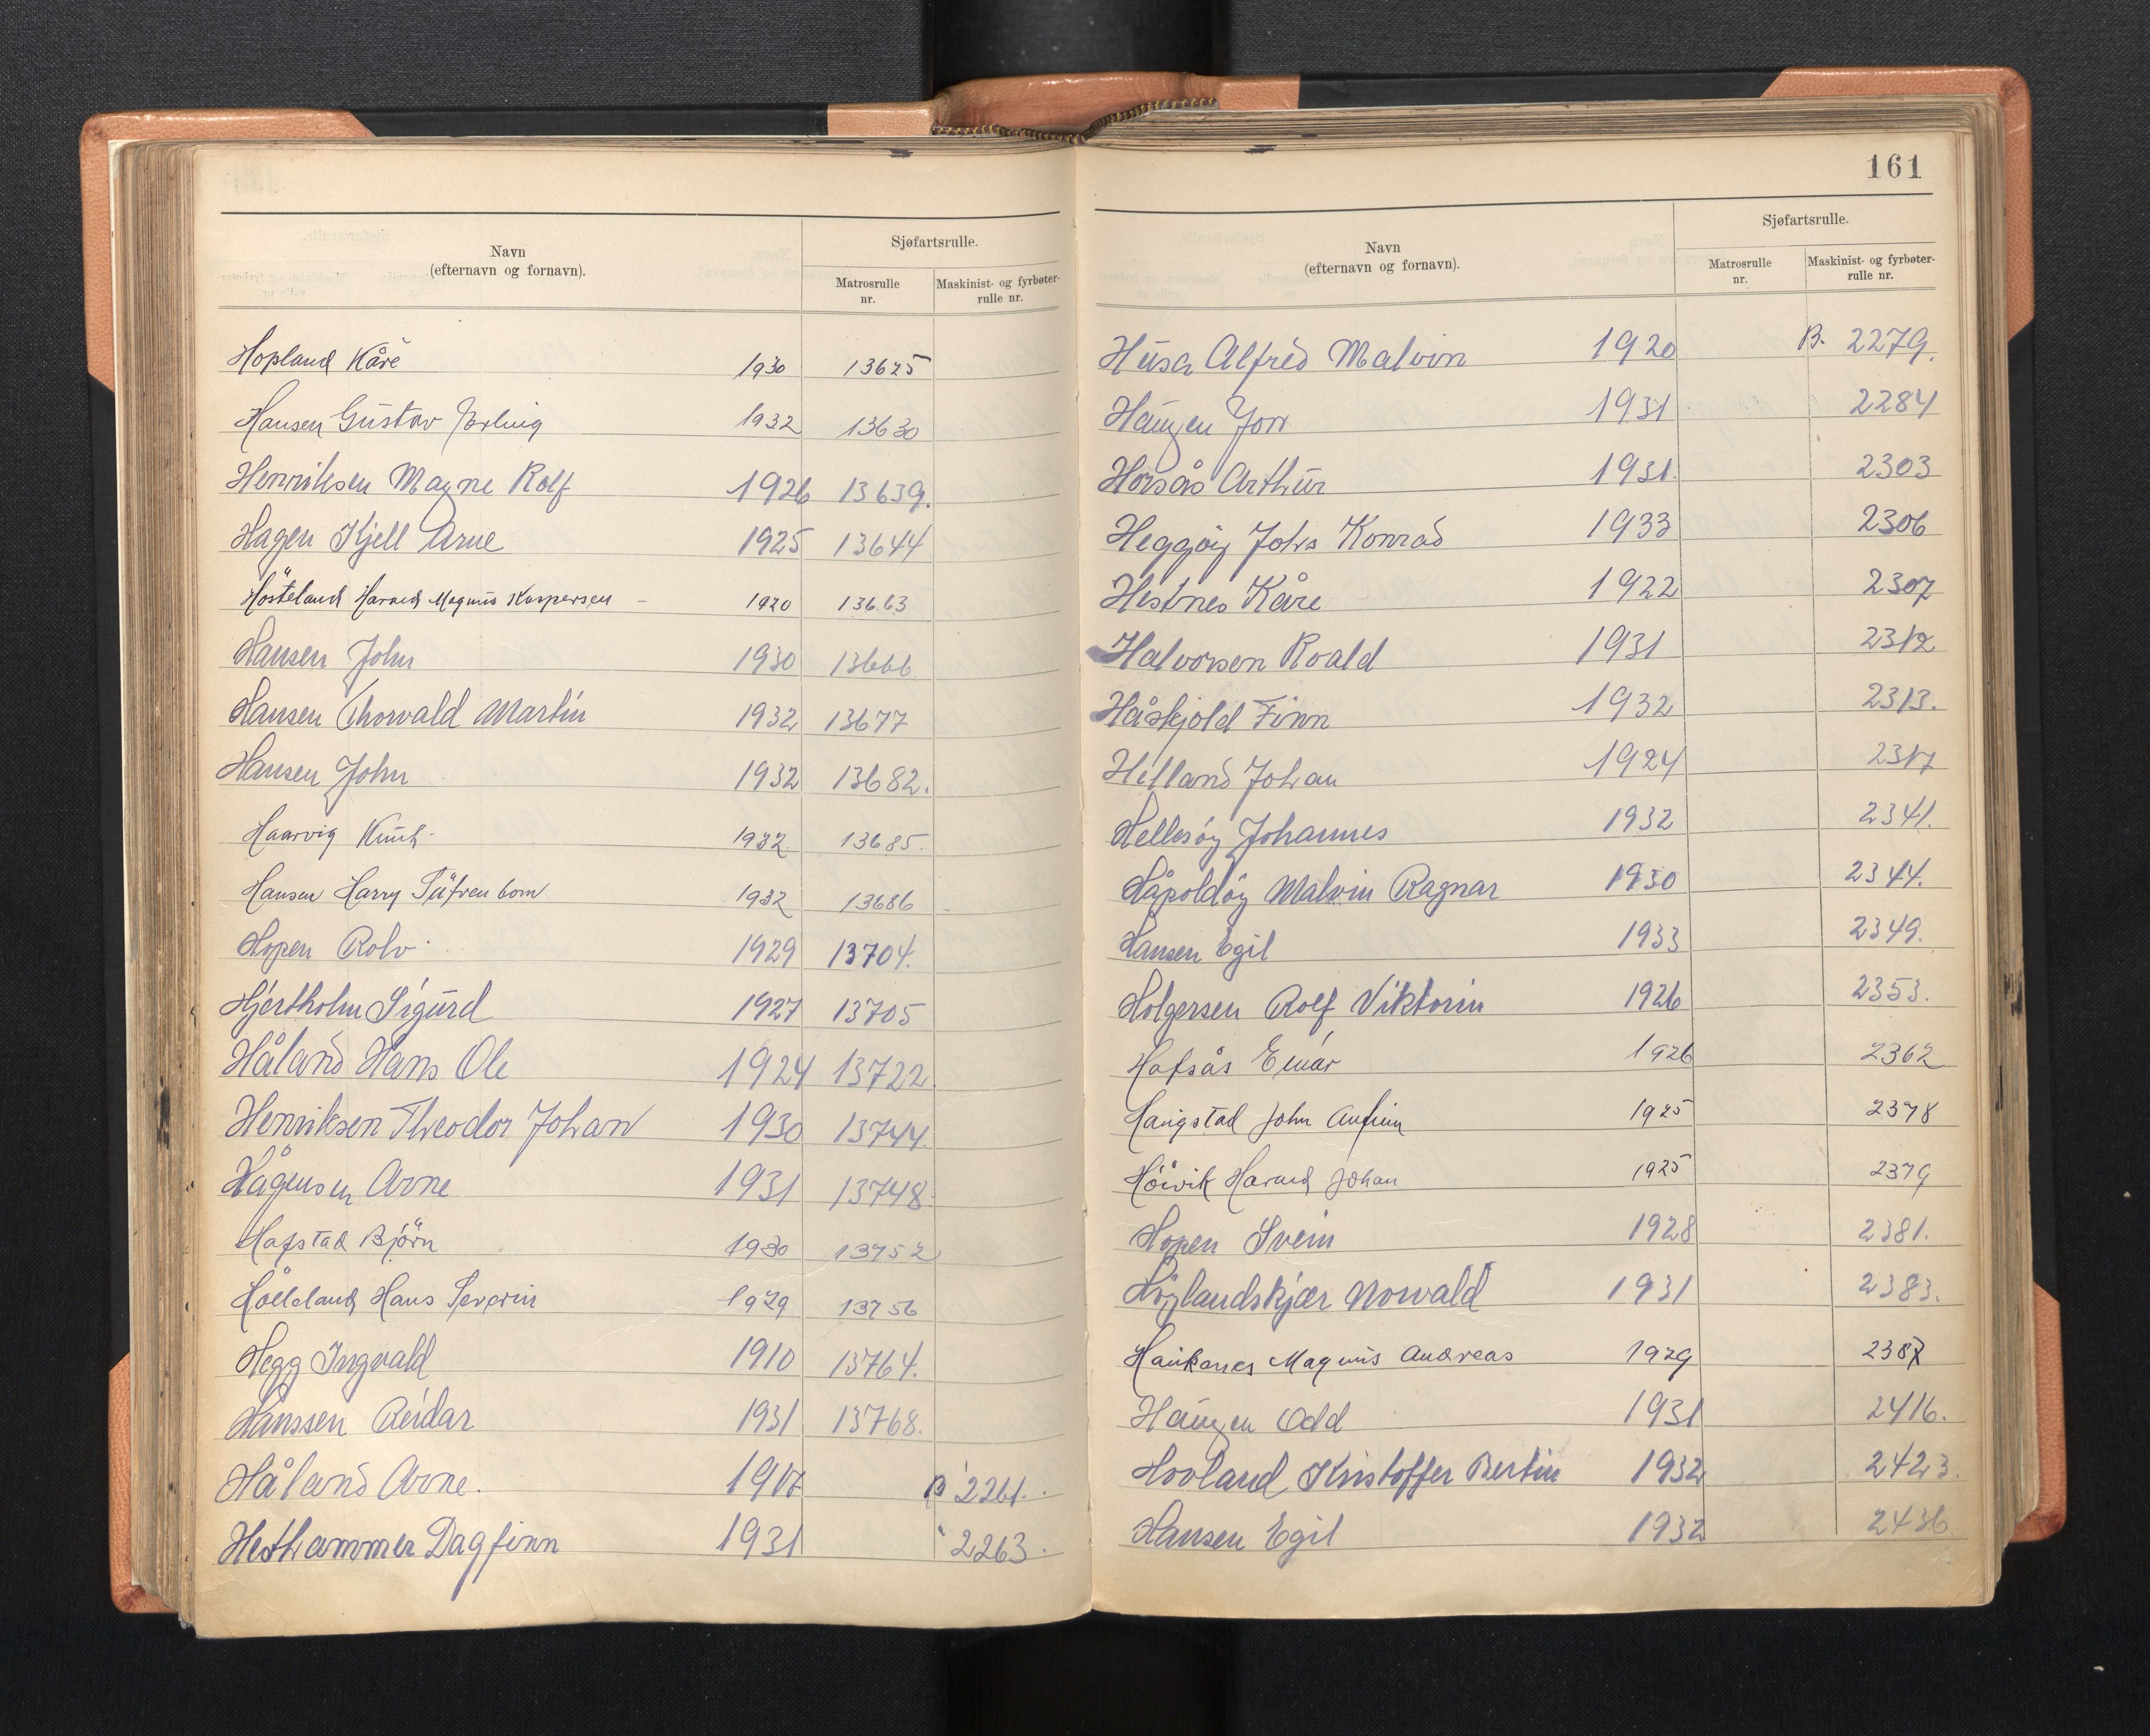 Navn
(efternavn og fornavn).
Sjøfartsrulle.
Matrosrulle
nr.
Maskinist- og fyrbøter-
rulle nr.
Hopland Kåre 1930 13625
Hansen Gustav Erling 1932 13630
Henriksen Magne Rolf 1926 13639.
Hagen Kjell Arne 1925 13644
Hösteland Harald Magnus Kaspersen - 1920 13663
Hansen John 1930 13666
Hansen Thorvald Martin 1932 13677
Hansen John 1932 13682.
Haarvig Knut 1932. 13685.
Hansen Harry 1932 13686
Hopen Rolv 1929 13704.
Hjertholm Sigurd 1927 13705
Håland Hans Ole 1924 13722
Henriksen Theodor Johan 1930 13744.
Hågensen Arne 1931 13748.
Hafstad Björn 1930 13752
Hölleland Hans Severin 1929 13756
Hegg Ingvald 1910 13764.
Hanssen Reidar 1931 13768.
Håland Arne. 1917 B 2261.
Hesthammer Dagfinn 1931 " 2263.
161
Navn
(efternavn og fornavn).
Sjøfartsrulle.
Matrosrulle
nr.
Maskinist- og fyrbøter-
rulle nr.
Husa Alfred Malvin 1920 B. 2279.
Haugen Jon 1931 2284
Horsås Arthur 1931. 2303
Heggøy Johs Konrad 1933 2306
Hestnes Kåre 1922 2307
Halvorsen Roald 1931 2312
Håskjold Finn 1932 2313.
Helland Johan 1924 2317
Hellesöy Johannes 1932 2341.
Håpoldöy Malvin Ragnar 1930 2344.
Hansen Egil 1933 2349.
Holgersen Rolf Viktorin 1926 2353.
Hafsås Einar 1926 2362
Haugstad John Anfinn 1925 2378
Höivik Harald Johan 1925 2379
Hopen Svein 1928 2381.
Höylandskjær Norvald 1931 2383.
Haukanes Magnus Andreas 1929 2387
Haugen Odd 1931 2416.
Hovland Kristoffer Bertin 1932 2423.
Hansen Egil 1932 2436.